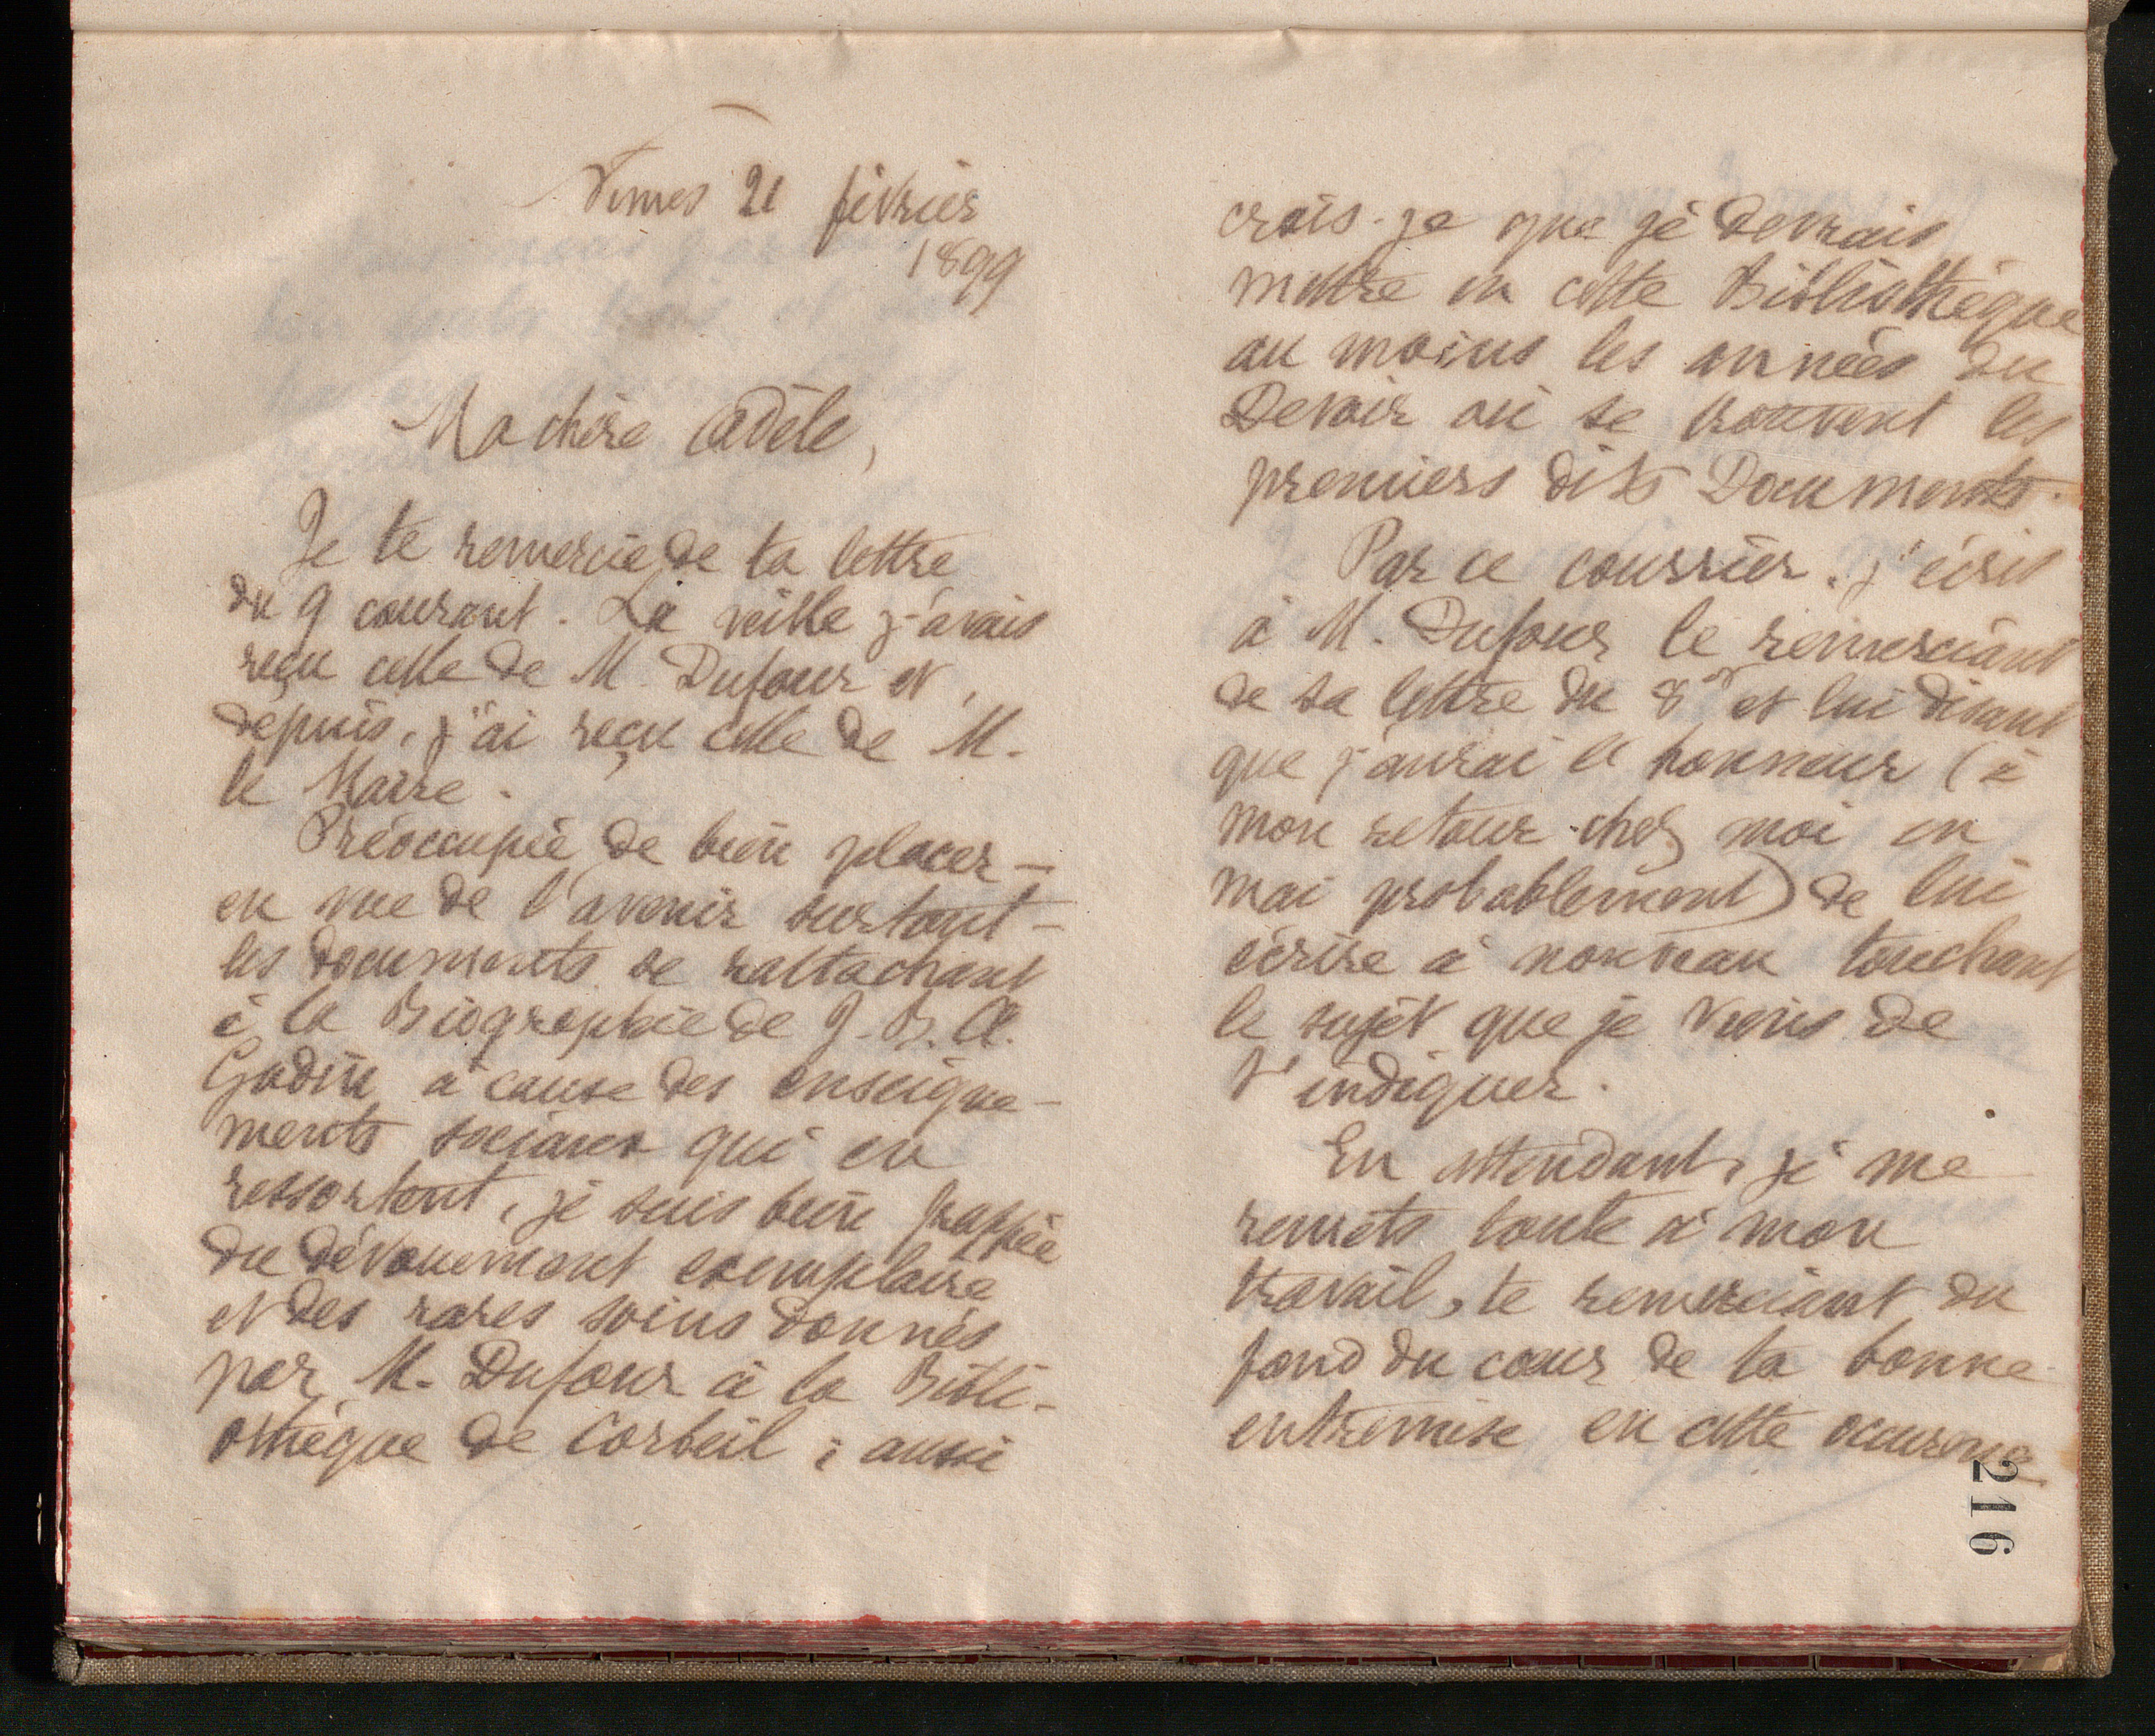 Nimes 21 février
1899
Ma chère Adèle,
Je te remercie de ta lettre
du 9 courant. La veille j'avais
reçu celle de M. Dufour et,
depuis, j'ai reçu celle de M.
le Maire.
Préoccupée de bien placer -
en vue de l'avenir surtout -
les documents se rattachant
à la Biographie de J. B. A.
Godin à cause des enseigne-
ments sociaux qui en
ressortent, je suis bien frappée
du dévouement exemplaire
et des rares soins donnés
par M. Dufour à la Bibli-
othèque de Corbeil ; aussi
crois-je que je devrais
mettre en cette Bibliothèque
au moins les années du
Devoir où se trouvent les
premiers dits Documents.
Par ce courrier, j'écris
à M. Dufour le remerciant
de sa lettre du 8 et lui disant
que j'aurai l'honneur (à
mon retour chez moi en
mai probablement) de lui
écrire à nouveau touchant
le sujet que je viens de
t'indiquer.
En attendant, je me
remets toute à mon
travail, te remerciant du
fond du cœur de ta bonne
entremise en cette occurence
216